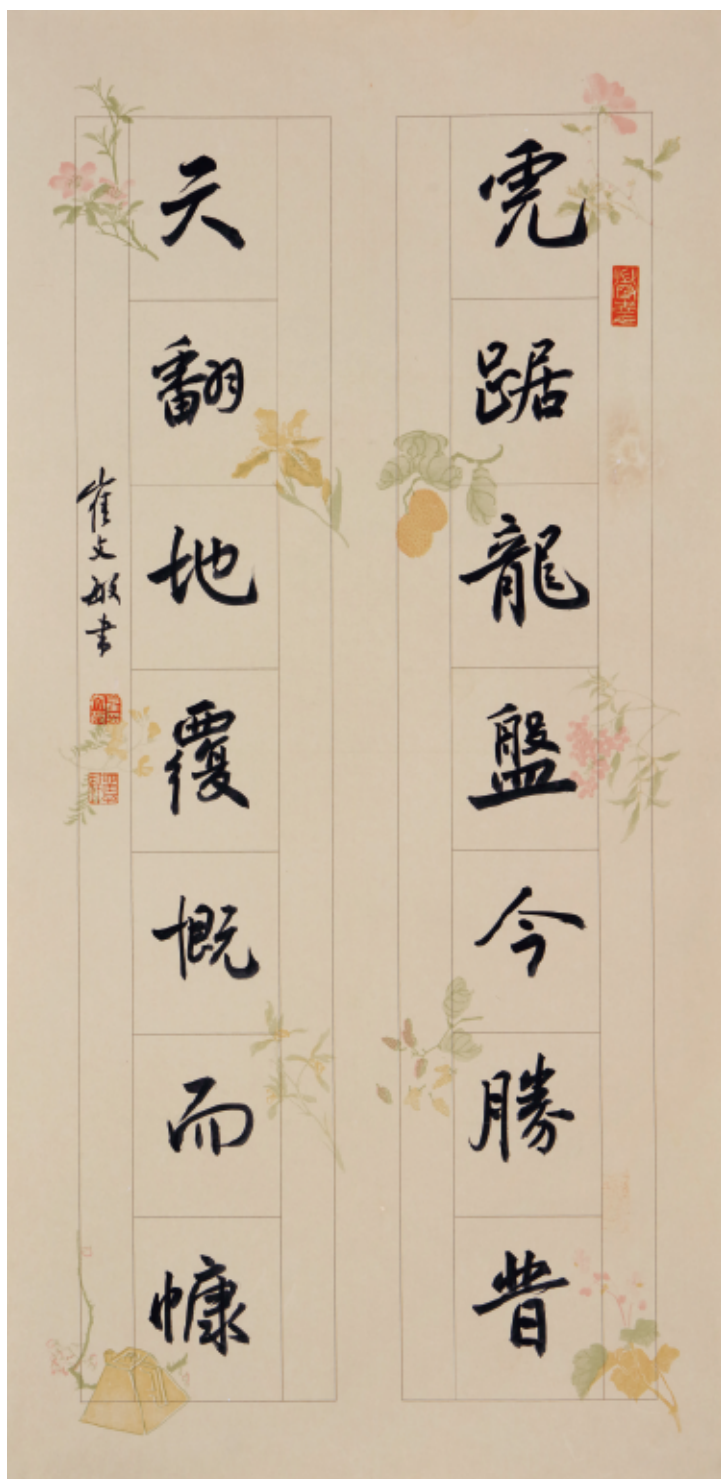 虎踞龍盤今勝昔
天翻地覆慨而慷
崔文敏書